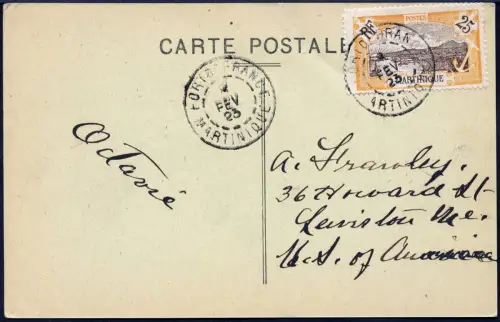 CARTE POSTALE
RF
POSTES
25c
MARTINIQUE
FORT DE FRANCE
FEV
23
MARTINIQUE
FORT DE FRAN
FEV
23
MARTINIQ
Octavie
A. Frawley.
36 Howard St
Lewiston Me.
U.S. of America